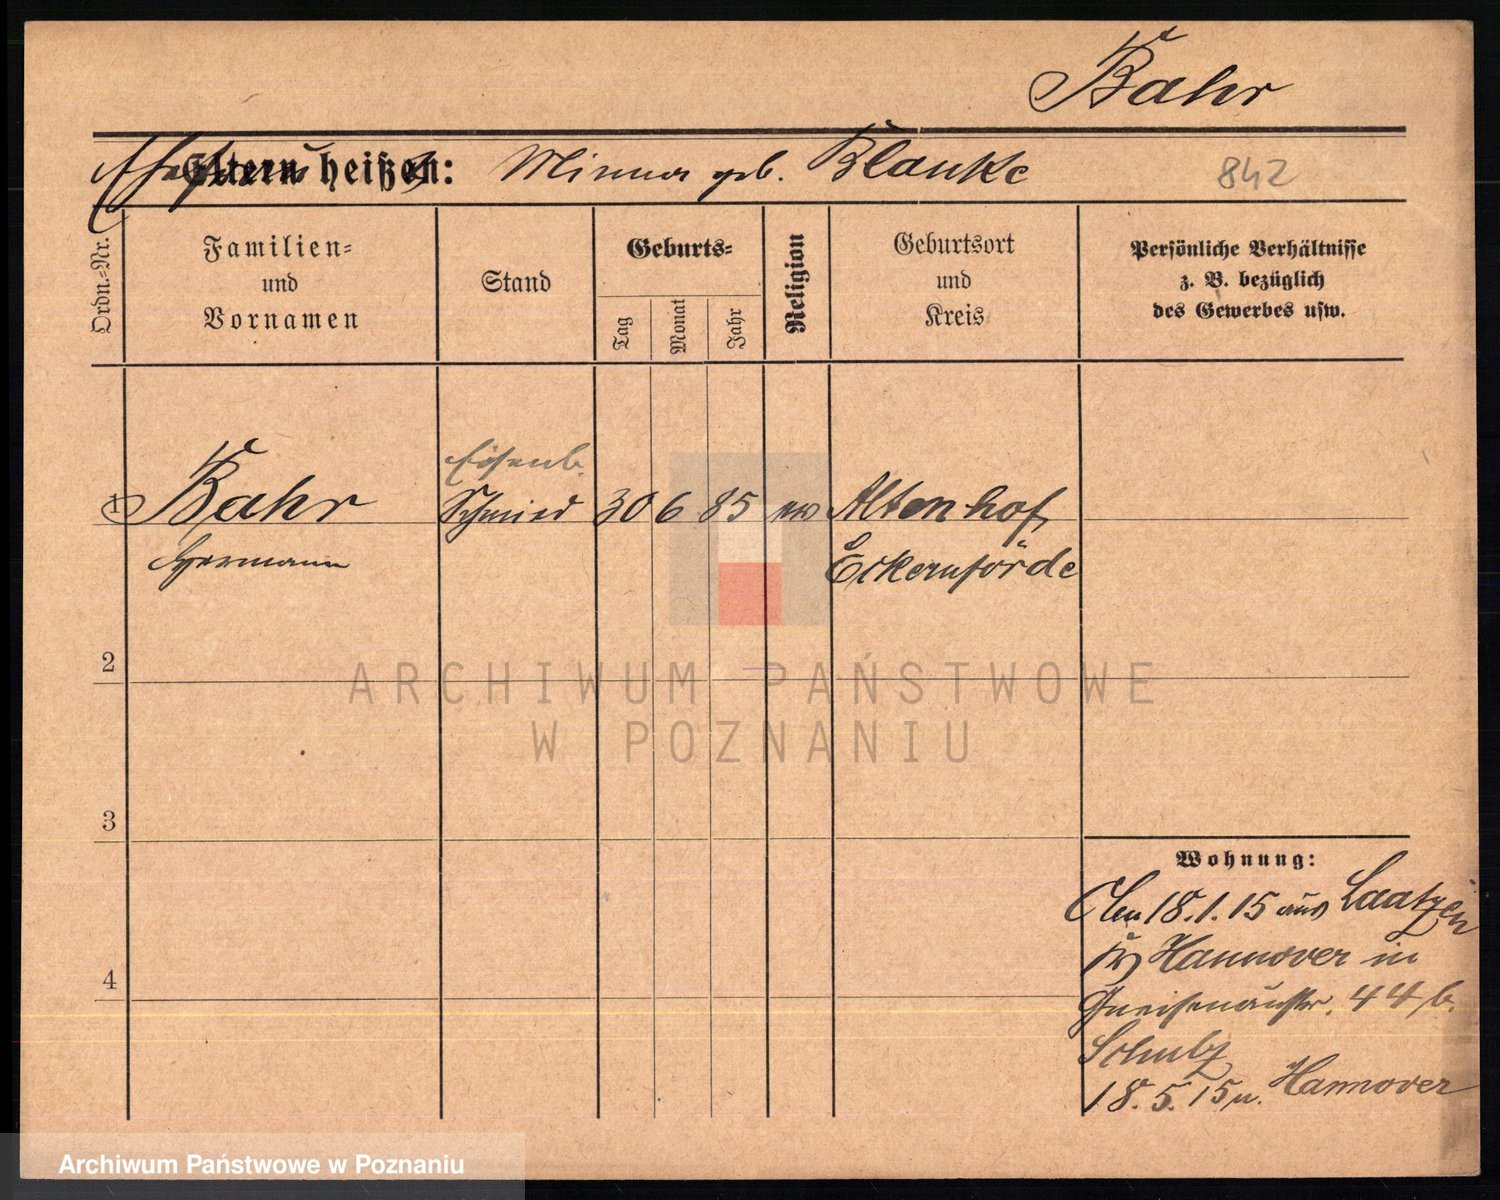 Bahr
Eltern heißen: Minna geb. Blanke 842
Ordn.-Nr.
Familien-
und
Vornamen
Stand
Geburts-
Tag
Monat
Jahr
Religion
Geburtsort
und
Kreis
Persönliche Verhältnisse
z. B. bezüglich
des Gewerbes usw.
Eisenb.
1 Bahr Schmied 30 6 85 ev Altenhof
Hermann Eckernförde
2
ARCHIWUM PAŃSTWOWE
W POZNANIU
3
Wohnung:
18.1.15 aus Laatzen
Hannover in
Gneisenaustr. 44 b.
Schulz
4
18.5.15 n. Hannover
Archiwum Państwowe w Poznaniu